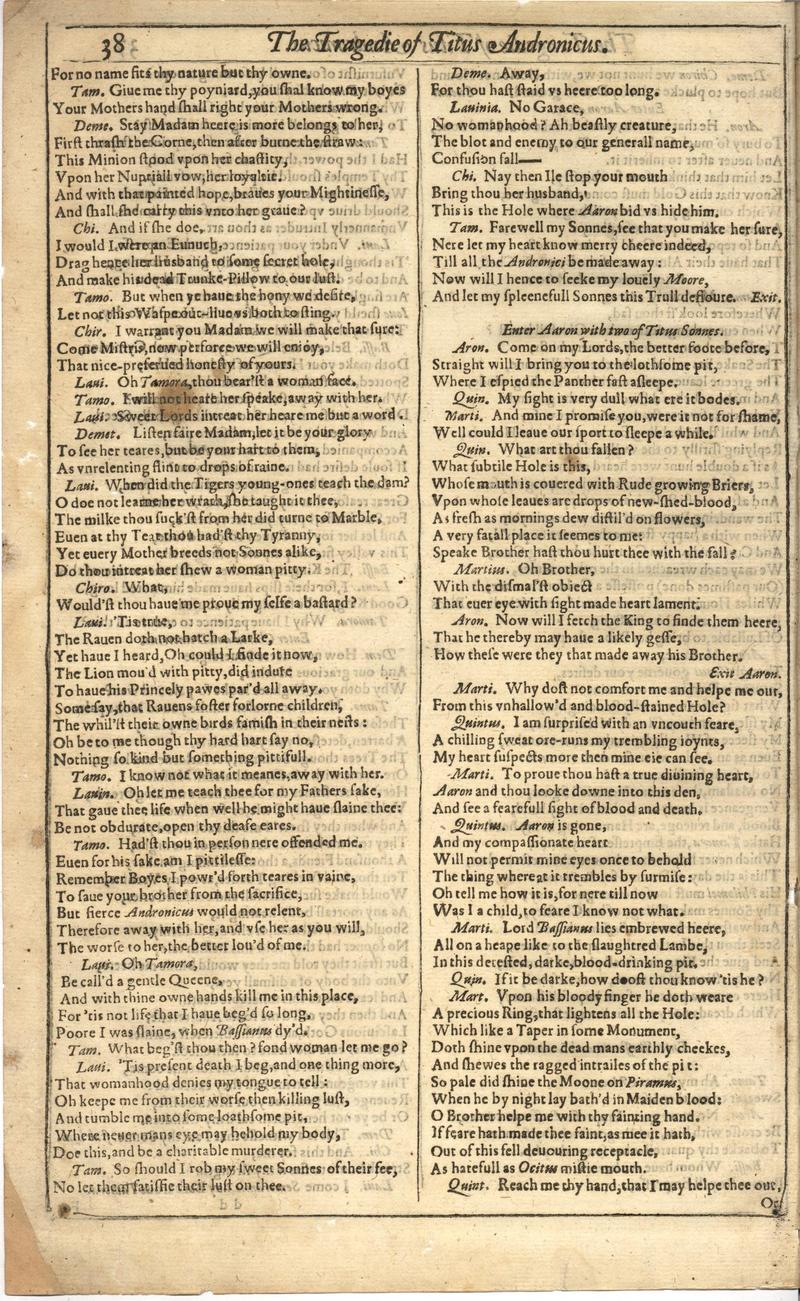 38 The Tragedie of Titus Andronicus.
For no name fits thy nature but thy owne.
Tam. Giue me thy poyniard, you shal know my boyes
Your Mothers hand shall right your Mothers wrong.
Deme. Stay Madam heere is more belongs to her,
First thrash the Corne, then after burne the straw:
This Minion stood vpon her chastity,
Vpon her Nuptiall vow, her loyaltie.
And with that painted hope, braues your Mightinesse,
And shall she carry this vnto her graue?
Chi. And if she doe,
I would I were an Eunuch,
Drag hence her husband to some secret hole,
And make his dead Trunke-Pillow to our lust.
Tamo. But when ye haue the hony we desire,
Let not this Waspe out-liue vs both to sting.
Chir. I warrant you Madam we will make that sure:
Come Mistris, now perforce we will enioy,
That nice-preserued honesty of yours.
Laui. Oh Tamora, thou bear'st a woman face.
Tamo. I will not heare her speake, away with her.
Laui. Sweet Lords intreat her heare me but a word.
Demet. Listen faire Madam, let it be your glory
To see her teares, but be your hart to them,
As vnrelenting flint to drops of raine.
Laui. When did the Tigers young-ones teach the dam?
O doe not learne her wrath, she taught it thee,
The milke thou suck'st from her did turne to Marble,
Euen at thy Teat thou had'st thy Tyranny,
Yet euery Mother breeds not Sonnes alike,
Do thou intreat her shew a woman pitty.
Chiro. What,
Would'st thou haue me proue my selfe a bastard?
Laui. 'Tis true,
The Rauen doth not hatch a Larke,
Yet haue I heard, Oh could I finde it now,
The Lion mou'd with pitty, did indure
To haue his Princely pawes par'd all away.
Some say, that Rauens foster forlorne children,
The whil'st their owne birds famish in their nests:
Oh be to me though thy hard hart say no,
Nothing so kind but something pittifull.
Tamo. I know not what it meanes, away with her.
Lauin. Oh let me teach thee for my Fathers sake,
That gaue thee life when well he might haue slaine thee:
Be not obdurate, open thy deafe eares.
Tamo. Had'st thou in person nere offended me.
Euen for his sake am I pittilesse:
Remember Boyes I powr'd forth teares in vaine,
To saue your brother from the sacrifice,
But fierce Andronicus would not relent,
Therefore away with her, and vse her as you will,
The worse to her, the better lou'd of me.
Laui. Oh Tamora,
Be call'd a gentle Queene,
And with thine owne hands kill me in this place,
For 'tis not life that I haue beg'd so long,
Poore I was slaine, when Bassianus dy'd.
Tam. What beg'st thou then? fond woman let me go?
Laui. 'Tis present death I beg, and one thing more,
That womanhood denies my tongue to tell:
Oh keepe me from their worse then killing lust,
And tumble me into some loathsome pit,
Where neuer mans eye may behold my body,
Doe this, and be a charitable murderer.
Tam. So should I rob my sweet Sonnes of their fee,
No let them satisfie their lust on thee.
Deme. Away,
For thou hast staid vs heere too long.
Lauinia. No Garace,
No womanhood? Ah beastly creature,
The blot and enemy to our generall name,
Confusion fall——
Chi. Nay then Ile stop your mouth
Bring thou her husband,
This is the Hole where Aaron bid vs hide him.
Tam. Farewell my Sonnes, see that you make her sure,
Nere let my heart know merry cheere indeed,
Till all the Andronici be made away:
Now will I hence to seeke my louely Moore,
And let my spleenefull Sonnes this Trull defloure. Exit.
Enter Aaron with two of Titus Sonnes.
Aron. Come on my Lords, the better foote before,
Straight will I bring you to the lothsome pit,
Where I espied the Panther fast asleepe.
Quin. My sight is very dull what ere it bodes.
Marti. And mine I promise you, were it not for shame,
Well could I leaue our sport to sleepe a while.
Quin. What art thou fallen?
What subtile Hole is this,
Whose mouth is couered with Rude growing Briers,
Vpon whose leaues are drops of new-shed-blood,
As fresh as mornings dew distil'd on flowers,
A very fatall place it seemes to me:
Speake Brother hast thou hurt thee with the fall?
Martius. Oh Brother,
With the dismal'st obiect
That euer eye with sight made heart lament.
Aron. Now will I fetch the King to finde them heere,
That he thereby may haue a likely gesse,
How these were they that made away his Brother.
Exit Aaron.
Marti. Why dost not comfort me and helpe me out,
From this vnhallow'd and blood-stained Hole?
Quintus. I am surprised with an vncouth feare,
A chilling sweat ore-runs my trembling ioynts,
My heart suspects more then mine eie can see.
Marti. To proue thou hast a true diuining heart,
Aaron and thou looke downe into this den,
And see a fearefull sight of blood and death.
Quintus. Aaron is gone,
And my compassionate heart
Will not permit mine eyes once to behold
The thing whereat it trembles by surmise:
Oh tell me how it is, for nere till now
Was I a child, to feare I know not what.
Marti. Lord Bassianus lies embrewed heere,
All on a heape like to the slaughtred Lambe,
In this detested, darke, blood-drinking pit.
Quin. If it be darke, how doost thou know 'tis he?
Mart. Vpon his bloody finger he doth weare
A precious Ring, that lightens all the Hole:
Which like a Taper in some Monument,
Doth shine vpon the dead mans earthly cheekes,
And shewes the ragged intrailes of the pit:
So pale did shine the Moone on Piramus,
When he by night lay bath'd in Maiden blood:
O Brother helpe me with thy fainting hand.
If feare hath made thee faint, as mee it hath,
Out of this fell deuouring receptacle,
As hatefull as Ocitus mistie mouth.
Quint. Reach me thy hand, that I may helpe thee out,
Or